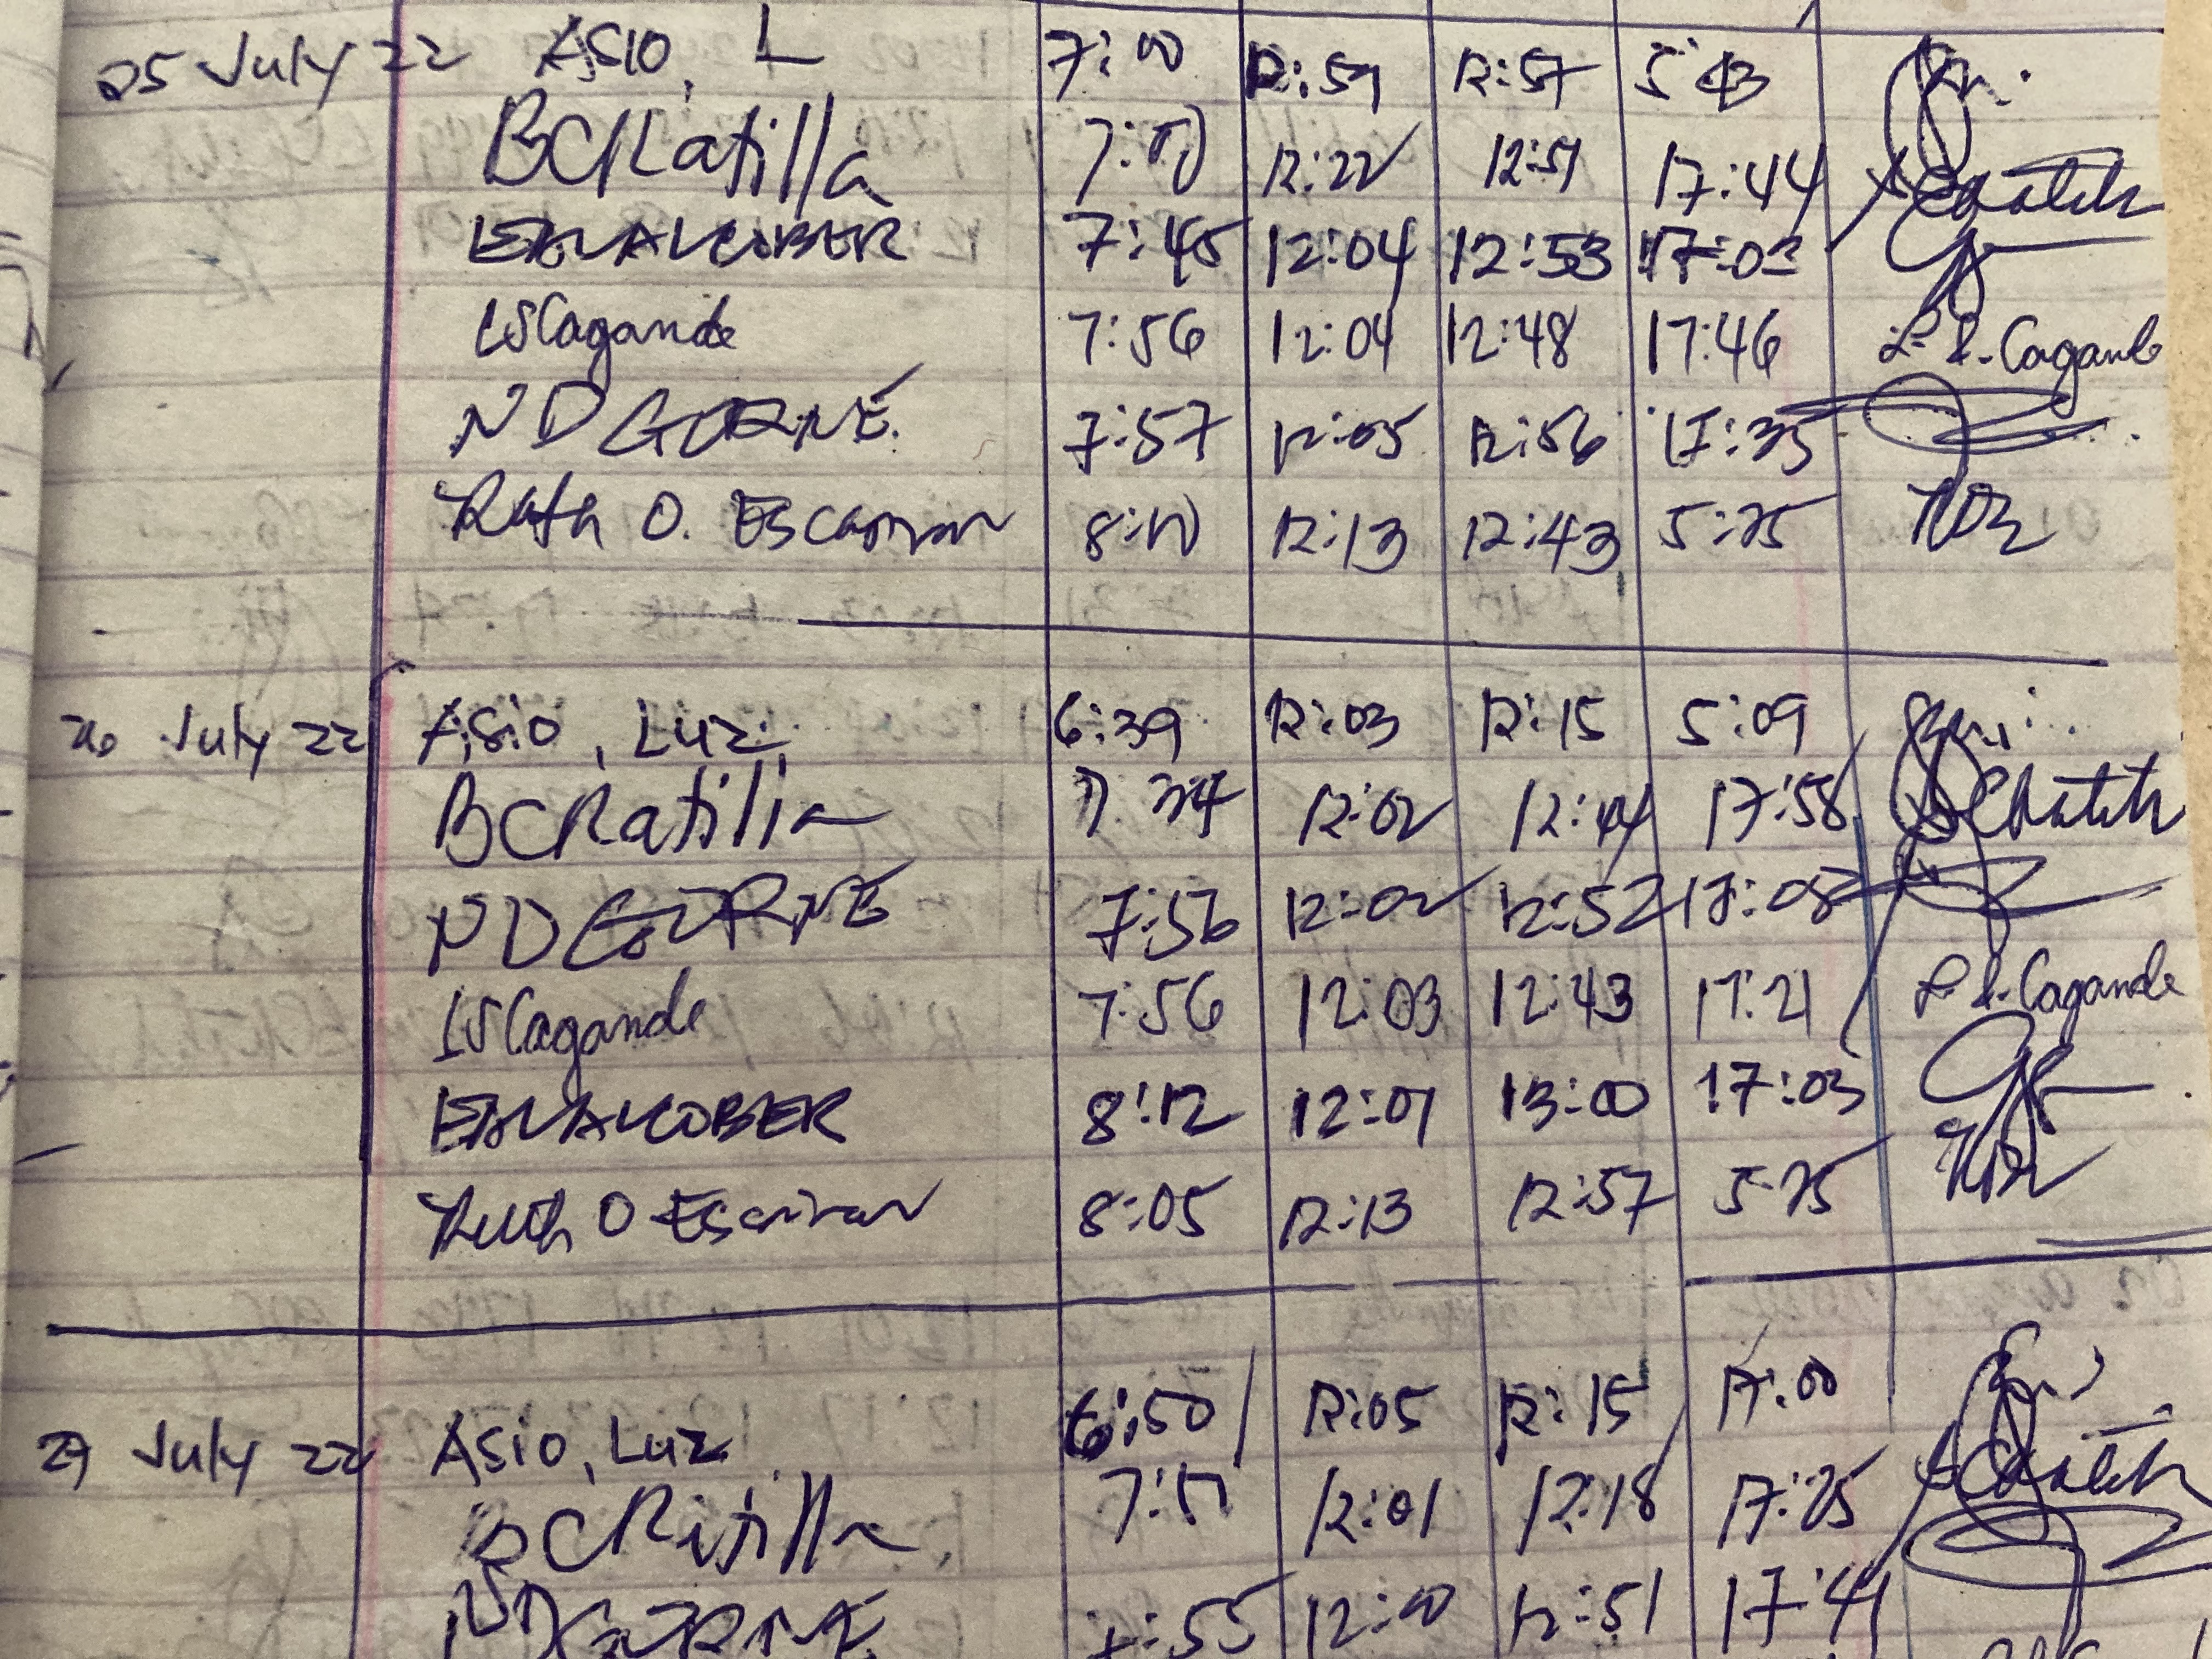 25 July 22 ASIO, L 7:00 12:59 12:57 5:43
BCRatilla 7:00 12:22 12:51 17:44
7:45 12:04 12:53 17:03
LSCagande 7:56 12:04 12:48 17:46 L. S. Cagande
ND GORNE. 7:57 12:05 12:56 17:35
Ruth O. 8:10 12:13 12:43 5:25
26 July 22 Asio, Luz 6:39 12:03 12:15 5:09
BCRatilla 7:34 12:02 12:44 17:58
ND GORNE 7:56 12:02 12:52 17:08
LSCagande 7:56 12:03 12:43 17:21 L. S. Cagande
8:12 12:01 13:00 17:03
Ruth O 8:05 12:13 12:57 5:25
27 July 22 Asio, Luz 6:50 12:05 12:15 17:00
BCRatilla 7:17 12:01 12:18 17:25
ND GORNE 7:55 12:10 12:51 17:41